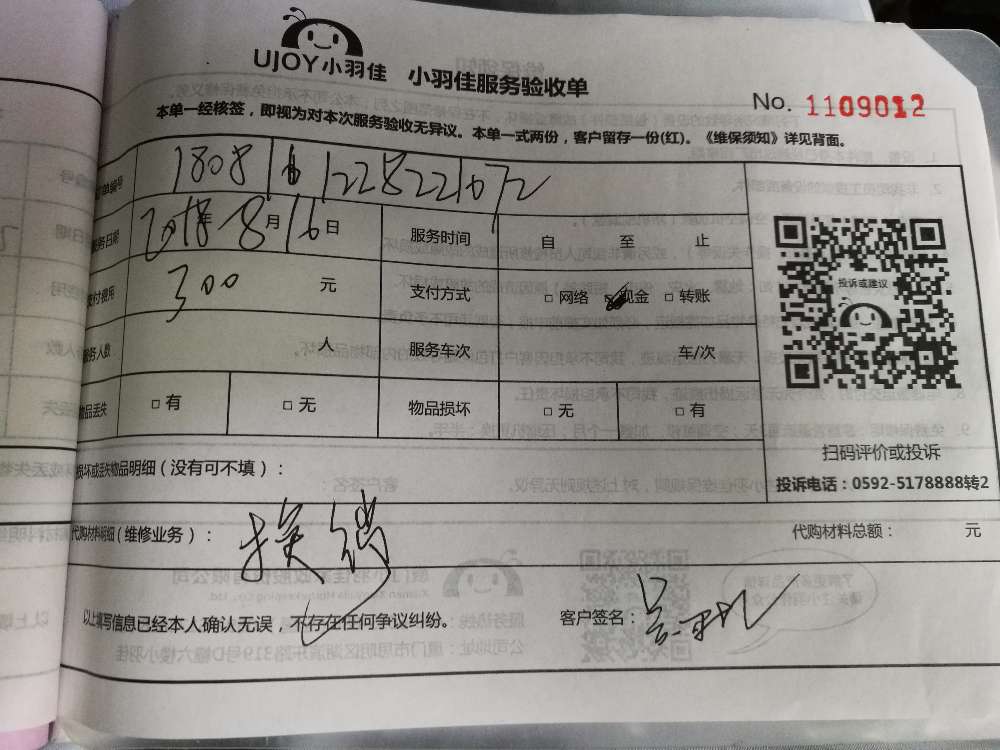 UJOY小羽佳 小羽佳服务验收单
No. 1109012
本单一经核签，即视为对本次服务验收无异议。本单一式两份，客户留存一份(红)。《维保须知》详见背面。
单编号 1808161228221072
服务日期 2018年8月16日 服务时间 自 至 止
支付费用 300 元 支付方式 □ 网络 现金 □ 转账
服务人数 人 服务车次 车/次
物品丢失 □ 有 □ 无 物品损坏 □ 无 □ 有
投诉或建议
扫码评价或投诉
投诉电话：0592-5178888转2
损坏或丢失物品明细（没有可不填）：
代购材料明细（维修业务）：
代购材料总额： 元
以上填写信息已经本人确认无误，不存在任何争议纠纷。 客户签名：